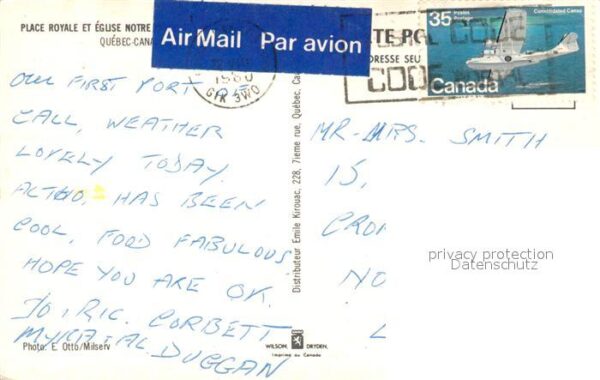 PLACE ROYALE ET ÉGLISE NOTRE
QUÉBEC-CANA
Air Mail Par avion
1980
G1K 3W0
CODE
CODE
35 Postes Postage
Consolidated Canso
Canada
OUR FIRST PORT OF
CALL, WEATHER
LOVELY TODAY,
ALTHO, HAS BEEN
COOL, FOOD FABULOUS
HOPE YOU ARE OK.
JO, RIC. CORBETT
MYRA + AL DUGGAN
Photo: E. Otto/Milserv
Distributeur Emile Kirouac, 228, 7ieme rue, Québec, Ca
WILSON DRYDEN
Imprimé au Canada
MR-MRS. SMITH
15,
CRO
NO
L
privacy protection
Datenschutz